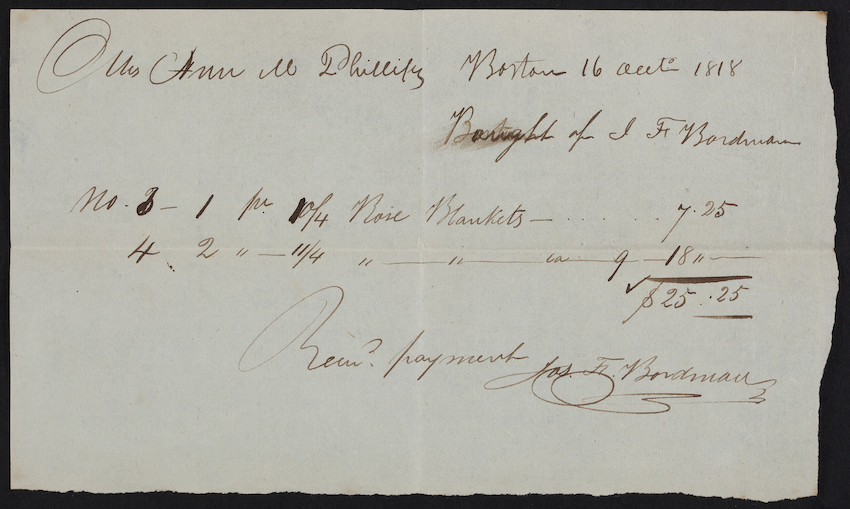 Mrs Ann M Phillips Boston 16 Octo 1818
Bought of J F Bordman
No. 3 — 1 pr 10/4 Rose Blankets — . . . . . . 7.25
4 2 " — 11/4 " — " — ea 9 — 18 " —
$25.25
Recd. payment Jos. F. Bordman